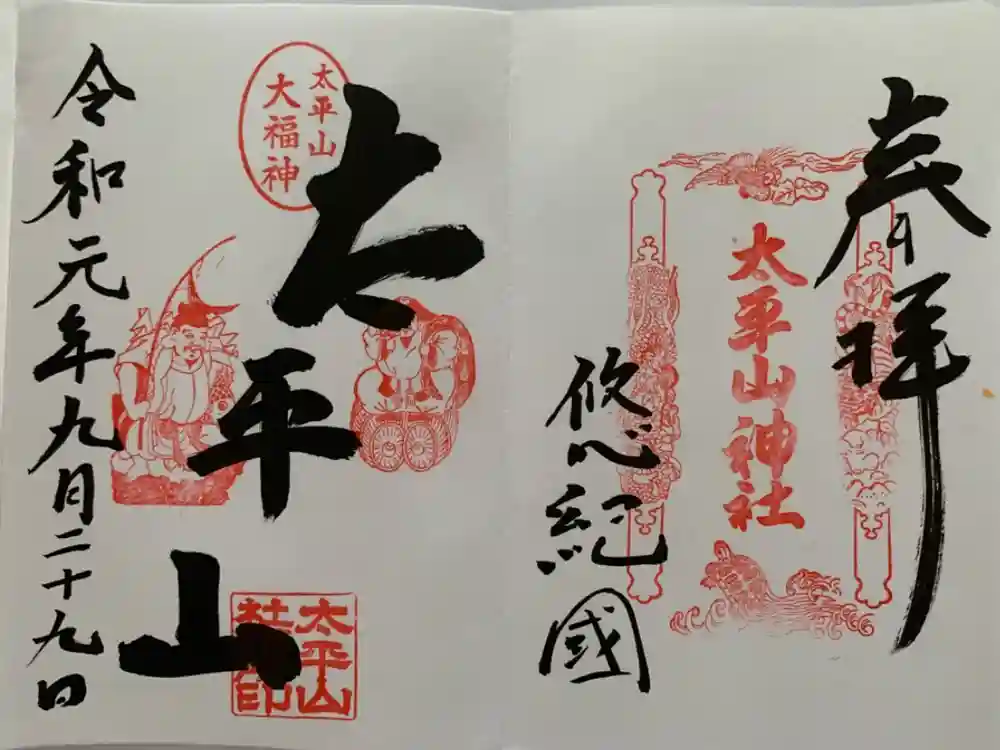 奉拝
太平山神社
悠紀國
太平山
大福神
太平山
太平山
社印
令和元年九月二十九日